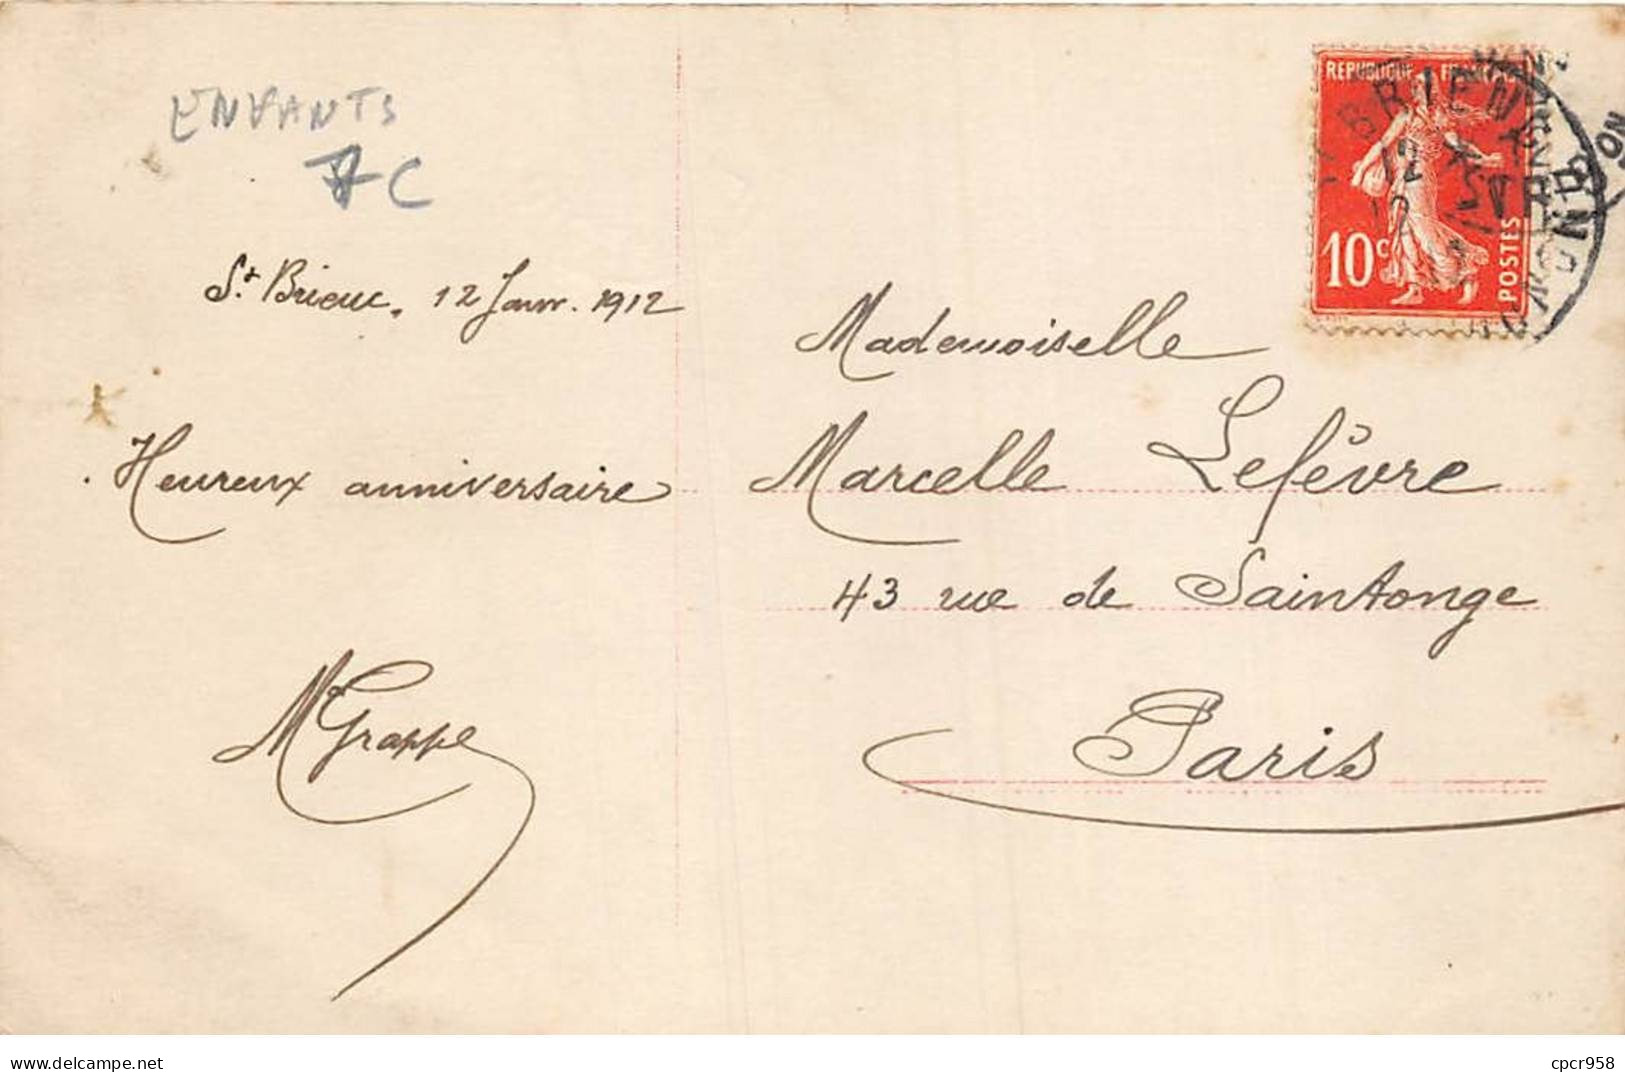 ENFANTS
7C
St Brieuc, 12 Janv. 1912
Heureux anniversaire
M Grappe
REPUBLIQUE FRANÇAISE
10c
POSTES
BRIEUC
12
Mademoiselle
Marcelle Lefèvre
43 rue de Saintonge
Paris
delcampe.net
cpcr958